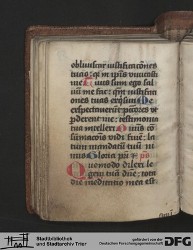 obliuiscar iustificatões
tuas: qɜ in ip̄is uiuicasti
me Tuus sum ego sal
uū me fac: qm̄ iustificati
ones tuas exquisiui Me
expectauerūt pctōres ut
perderent me: testimonia
tua intellexi Omnis cō
sumacōis uidi finē: la
tum mandatū tuū ni
mis Gloria pr̄i
Quomodo dilexi le
gem tuā dn̄e: tota
die meditatio mea est
Stadtbibliothek
und Stadtarchiv Trier
gefördert von der
Deutschen Forschungsgemeinschaft
DFG